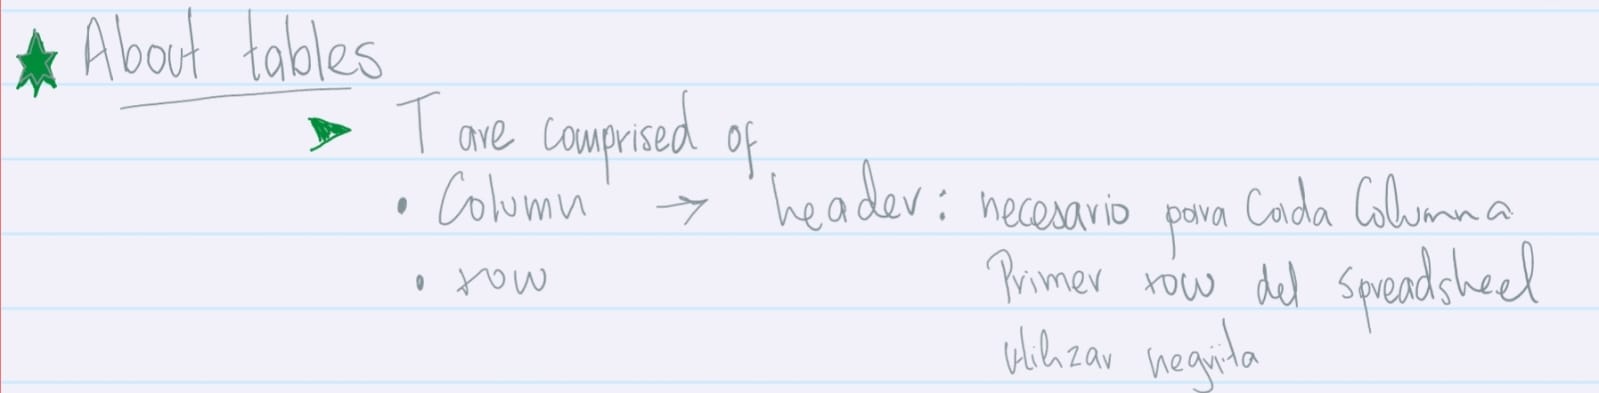 About tables
T are comprised of
• Column → header: necesario para Cada Columna
• row Primer row del spreadsheet
utilizar negrita